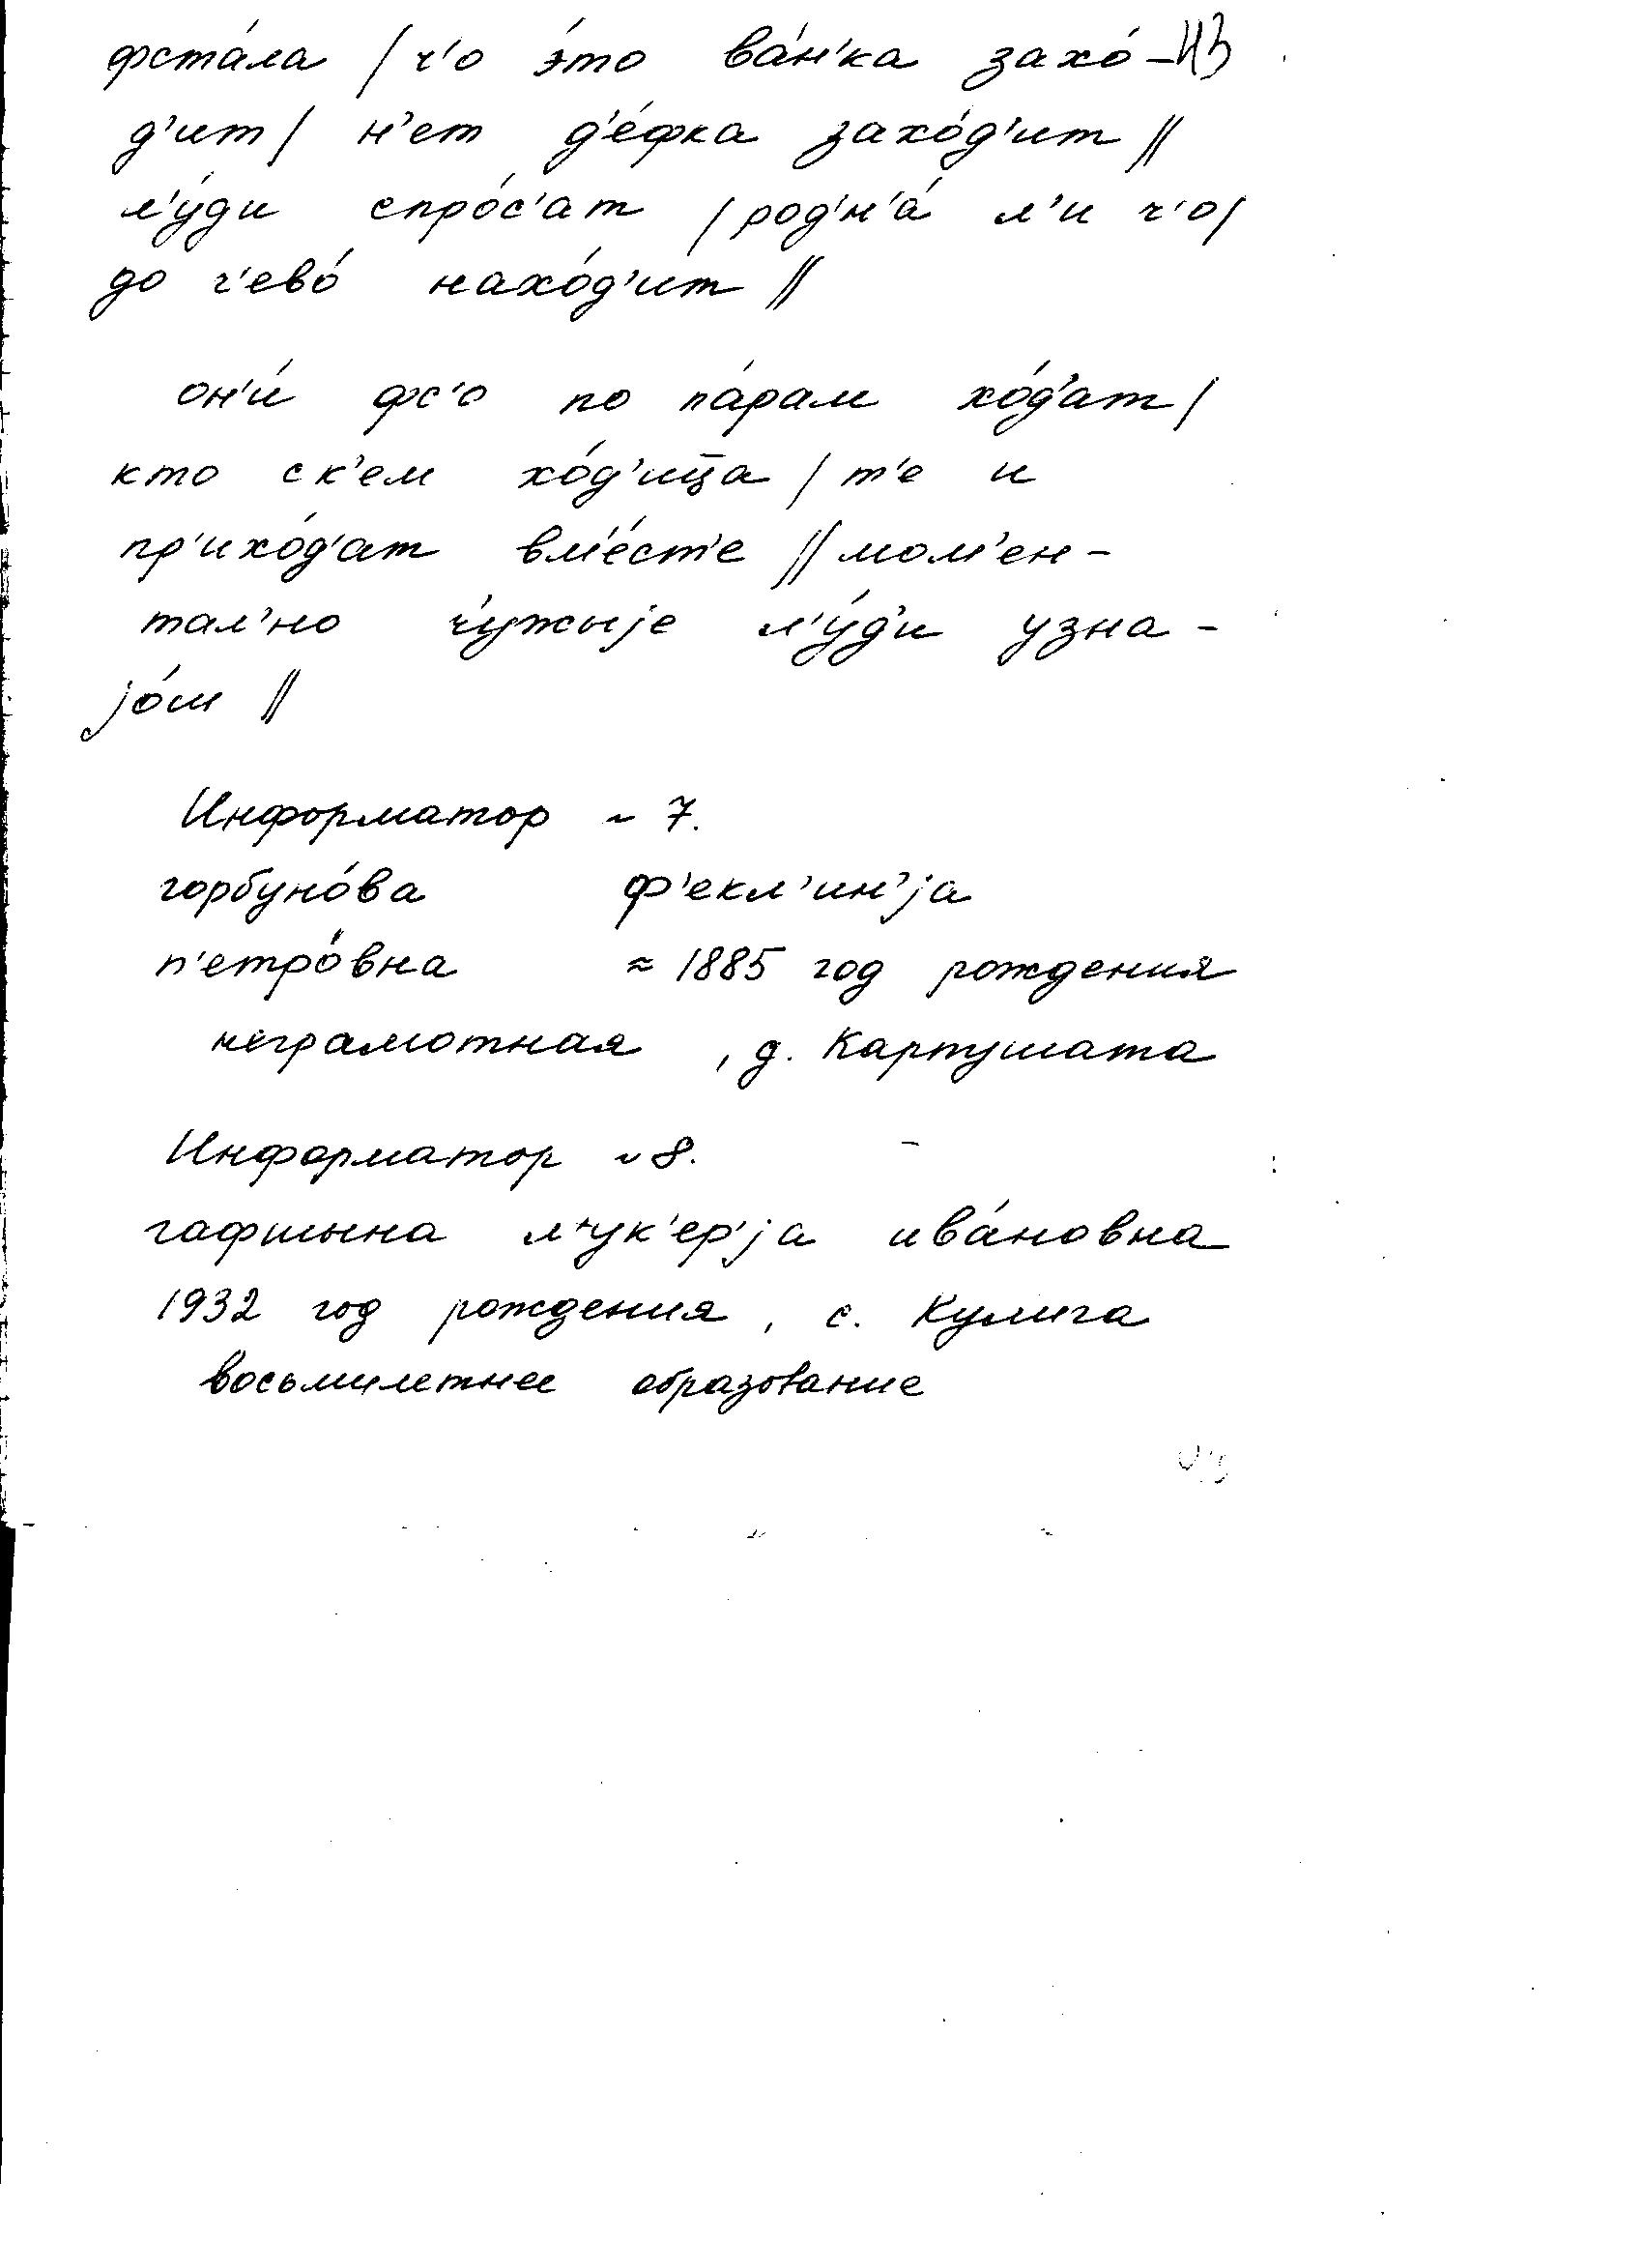 фста́ла / ч'о э́то ва́н'ка захо́ -
д'ит / н'ет д'е́фка захо́д'ит //
л'у́ди спро́с'ат / род'н'а́ л'и ч'о /
до ч'ево́ нахо́д'ит //
он'и́ фс'о по па́рам хо́д'ат /
кто ск'ем хо́д'ица / т'е и
пр'ихо́д'ат вм'е́ст'е // мом'ен -
тал'но ч'ужыjе л'у́д'и узна -
jо́ш //
Информатор ~ 7.
горбуно́ва ф'екл'ин'jа
п'етро́вна ≈ 1885 год рождения
неграмотная , д. Карпушата
Информатор ~ 8.
гафшына л'ук'ер'jа ива́новна
1932 год рождения , с. Кулига
восьмилетнее образование